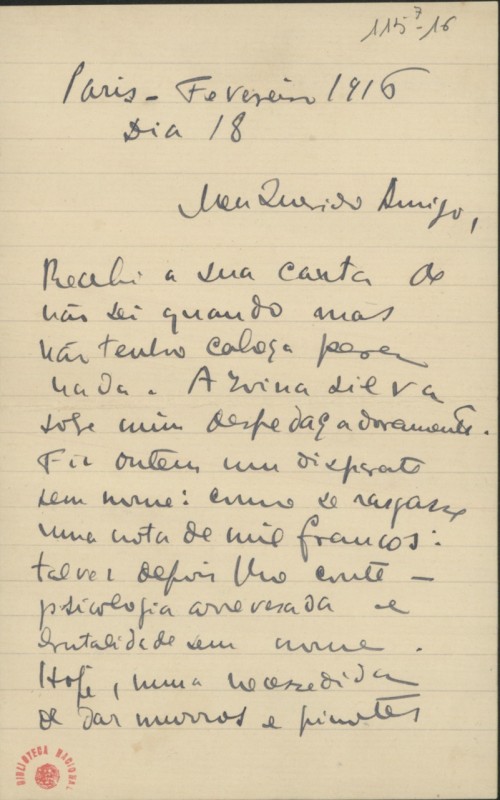 115⁷-16
Paris - Fevereiro 1916
Dia 18
Meu Querido Amigo,
Recebi a sua carta de
não sei quando mas
não tenho cabeça para
nada. A zoina silva
sobre mim despedaçadoramente.
Fiz ontem um disparate
sem nome: como se rasgasse
uma nota de mil francos:
talvez depois lho conte —
psicologia arrevesada e
brutalidade sem nome.
Hoje, numa necessidade
de dar murros e pinotes
BIBLIOTECA NACIONAL